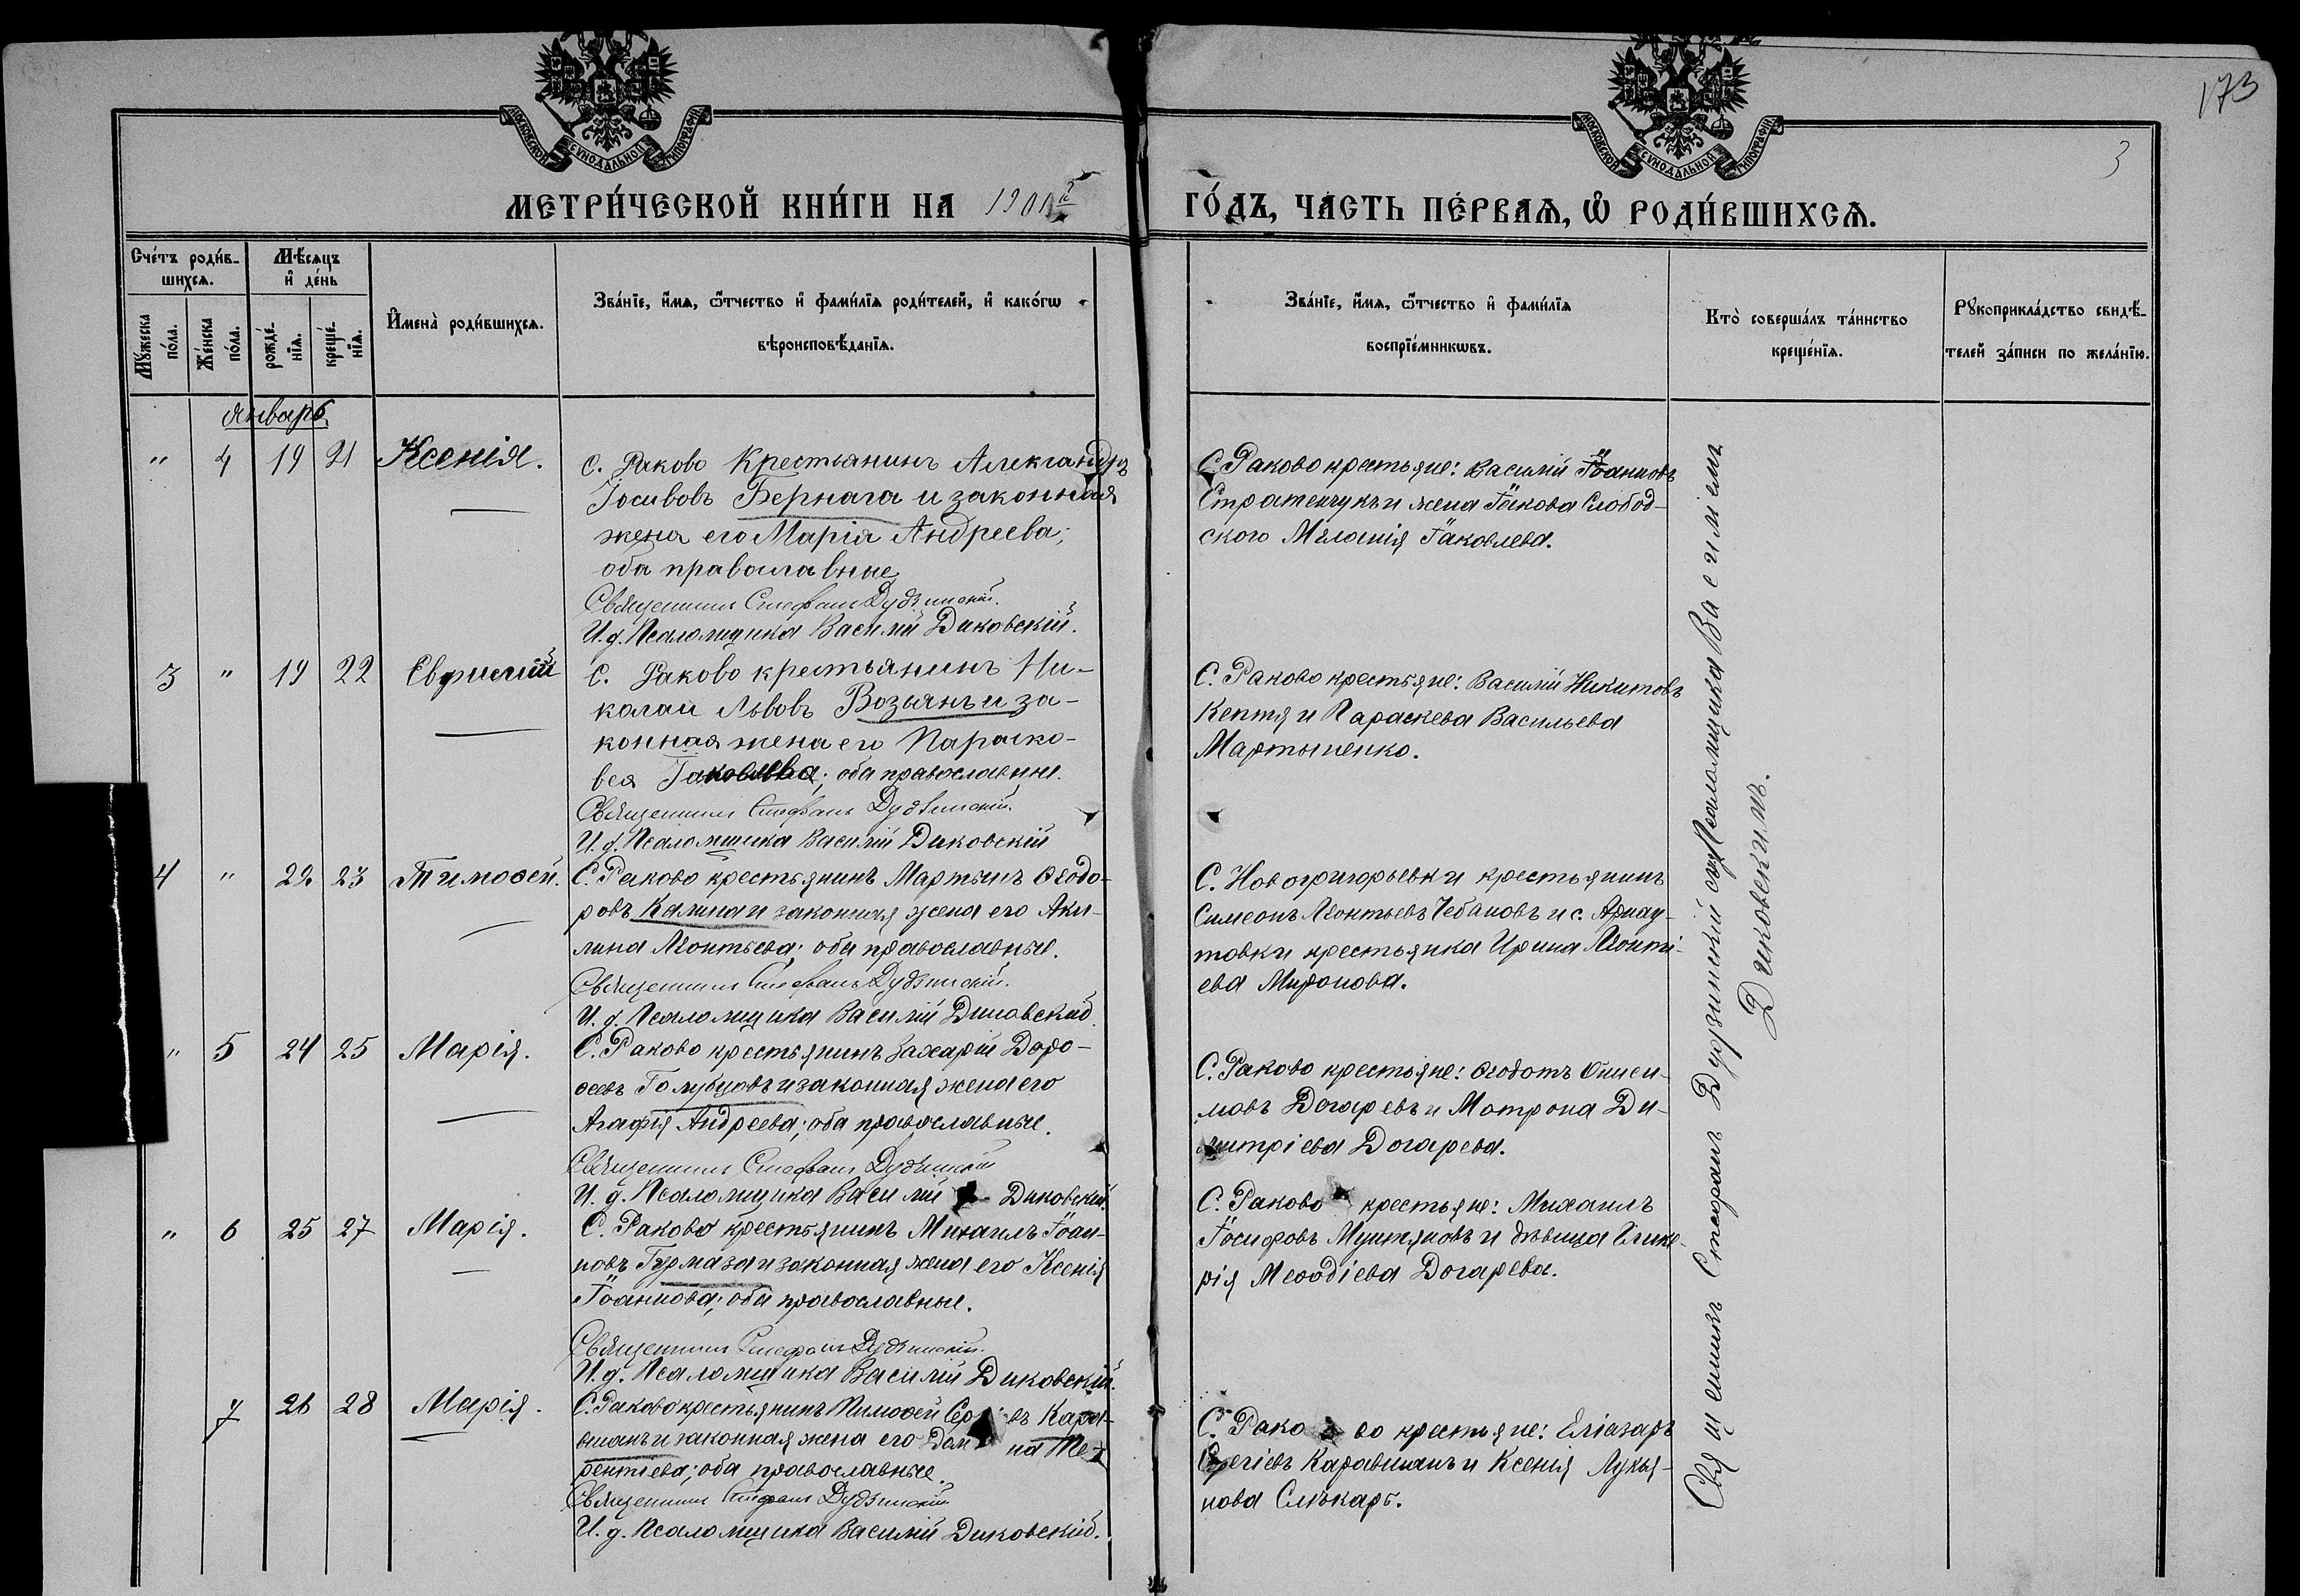 173
3
МОСКОВСКОЙ СѴНОДАЛЬНОЙ ТИПОГРАФІИ
МОСКОВСКОЙ СѴНОДАЛЬНОЙ ТИПОГРАФІИ
МЕТРИ́ЧЕСКОЙ КНИ́ГИ НА 1900й ГО́ДЪ, ЧА́СТЬ ПЕ́РВАѦ, Ѡ҆ РОДИ́ВШИХСѦ.
Сче́тъ роди́в-
шихсѧ.
Мѣ́сѧцъ
и҆ де́нь
Мꙋ́жеска
по́ла.
Же́нска
по́ла.
рожде́-
нїѧ.
креще́-
нїѧ.
И҆мена̀ роди́вшихсѧ.
Зва́нїе, и҆́мѧ, ѻ҆́тчество и҆ фами́лїѧ роди́телей, и҆ како́гѡ
вѣроисповѣ́данїѧ.
Зва́нїе, и҆́мѧ, ѻ҆́тчество и҆ фами́лїѧ
воспрїе́мникѡвъ.
Кто̀ соверша́лъ та́инство
креще́нїѧ.
Рꙋкоприкла́дство свидѣ́-
телей за́писи по жела́нїю.
Январь
" 4 19 21 Ксенія.
С. Раково Крестьянинъ Александръ
Іосивовъ Бернага и законная
жена его Марія Андреева;
оба православные
Священникъ Стефанъ Дудзинскій.
И. д. Псаломщика Василій Диковскій.
С. Раково крестьяне: Василій Іоанновъ
Стратенчукъ и жена Іакова Слобод-
ского Меланія Іаковлева.
3 " 19 22 Евфимій
С. Раково крестьянинъ Ни-
колай Львовъ Возьянъ и за-
конная жена его Параско-
вея Іаковлева; оба православные.
Священникъ Стефанъ Дудзинскій.
И. д. Псаломщика Василій Диковскій
С. Раково крестьяне: Василій Никитовъ
Кептя и Параскева Васильева
Мартыненко.
4 " 22 23 Тимоѳей.
С. Раково крестьянинъ Мартынъ Ѳеодо-
ровъ Калина и законная жена его Аки-
лина Леонтьева; оба православные.
Священникъ Стефанъ Дудзинскій.
И. д. Псаломщика Василій Диковскій
С. Новогригорьевки крестьянинъ
Симеонъ Леонтьевъ Чебановъ и с. Арнау-
товки крестьянка Ирина Леонті-
ева Миронова.
" 5 24 25 Марія.
С. Раково крестьянинъ Захарій Доро-
ѳеевъ Голубцовъ и законная жена его
Агафія Андреева; оба православные.
Священникъ Стефанъ Дудзинскій
И. д. Псаломщика Василій Диковскій.
С. Раково крестьяне: Ѳеодотъ Ониси-
мовъ Догаревъ и Матрона Ди-
митріева Догарева.
" 6 25 27 Марія.
С. Раково крестьянинъ Михаилъ Іоан-
новъ Гурмаза и законная жена его Ксенія
Іоаннова; оба православные.
Священникъ Стефанъ Дудзинскій.
И. д. Псаломщика Василій Диковскій.
С. Раково крестьяне: Михаилъ
Іосифовъ Мунтяновъ и дѣвица Глике-
рія Меѳодіева Догарева.
7 26 28 Марія.
С. Раково крестьянинъ Тимоѳей Кара-
вшанъ и законная жена его на Те-
рентіева; оба православные.
Священникъ Стефанъ Дудзинскій
И. д. Псаломщика Василій Диковскій.
С. Раково крестьяне: Еліазаръ
Сергіевъ Каравшанъ и Ксенія Лукья-
нова Слѣкарь.
Священникъ Стефанъ Дудзинскій съ Псаломщика Василіемъ
Диковскимъ.